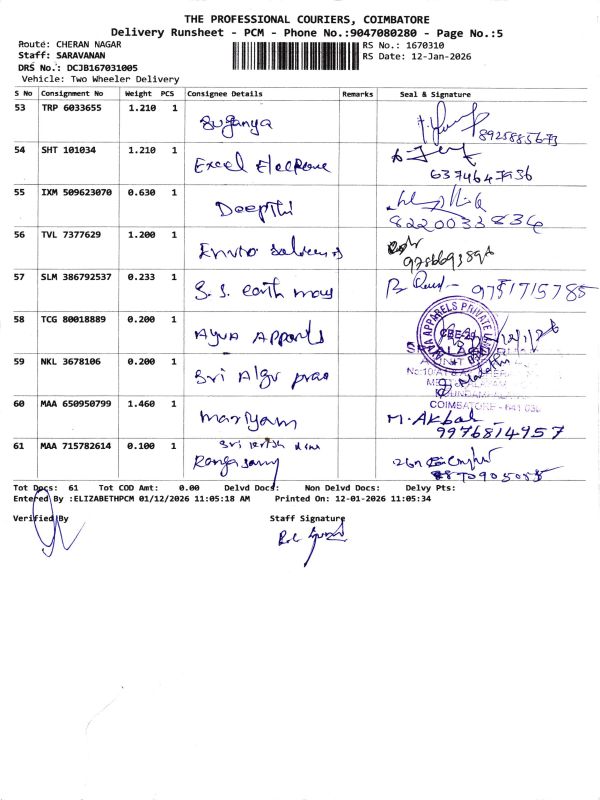 THE PROFESSIONAL COURIERS, COIMBATORE
Delivery Runsheet - PCM - Phone No.:9047080280 - Page No.:5
Route: CHERAN NAGAR
RS No.: 1670310
Staff: SARAVANAN
RS Date: 12-Jan-2026
DRS No.: DCJB167031005
Vehicle: Two Wheeler Delivery
S No Consignment No Weight PCS Consignee Details Remarks Seal & Signature
53 TRP 6033655 1.210 1 Suganya
54 SHT 101034 1.210 1 Excel
6374647936
55 IXM 509623070 0.630 1 Deepthi
8220033834
56 TVL 7377629 1.200 1 Enviro
57 SLM 386792537 0.233 1 S. S. earth movs 9751715785
58 TCG 80018889 0.200 1 Ayva Apparels
59 NKL 3678106 0.200 1 Sri
COIMBATORE - 641 030
60 MAA 650950799 1.460 1 mariyam M. Akbal
9976814957
61 MAA 715782614 0.100 1 Sri
Rangasamy
Tot Docs: 61 Tot COD Amt: 0.00 Delvd Docs: Non Delvd Docs: Delvy Pts:
Entered By :ELIZABETHPCM 01/12/2026 11:05:18 AM Printed On: 12-01-2026 11:05:34
Verified By Staff Signature